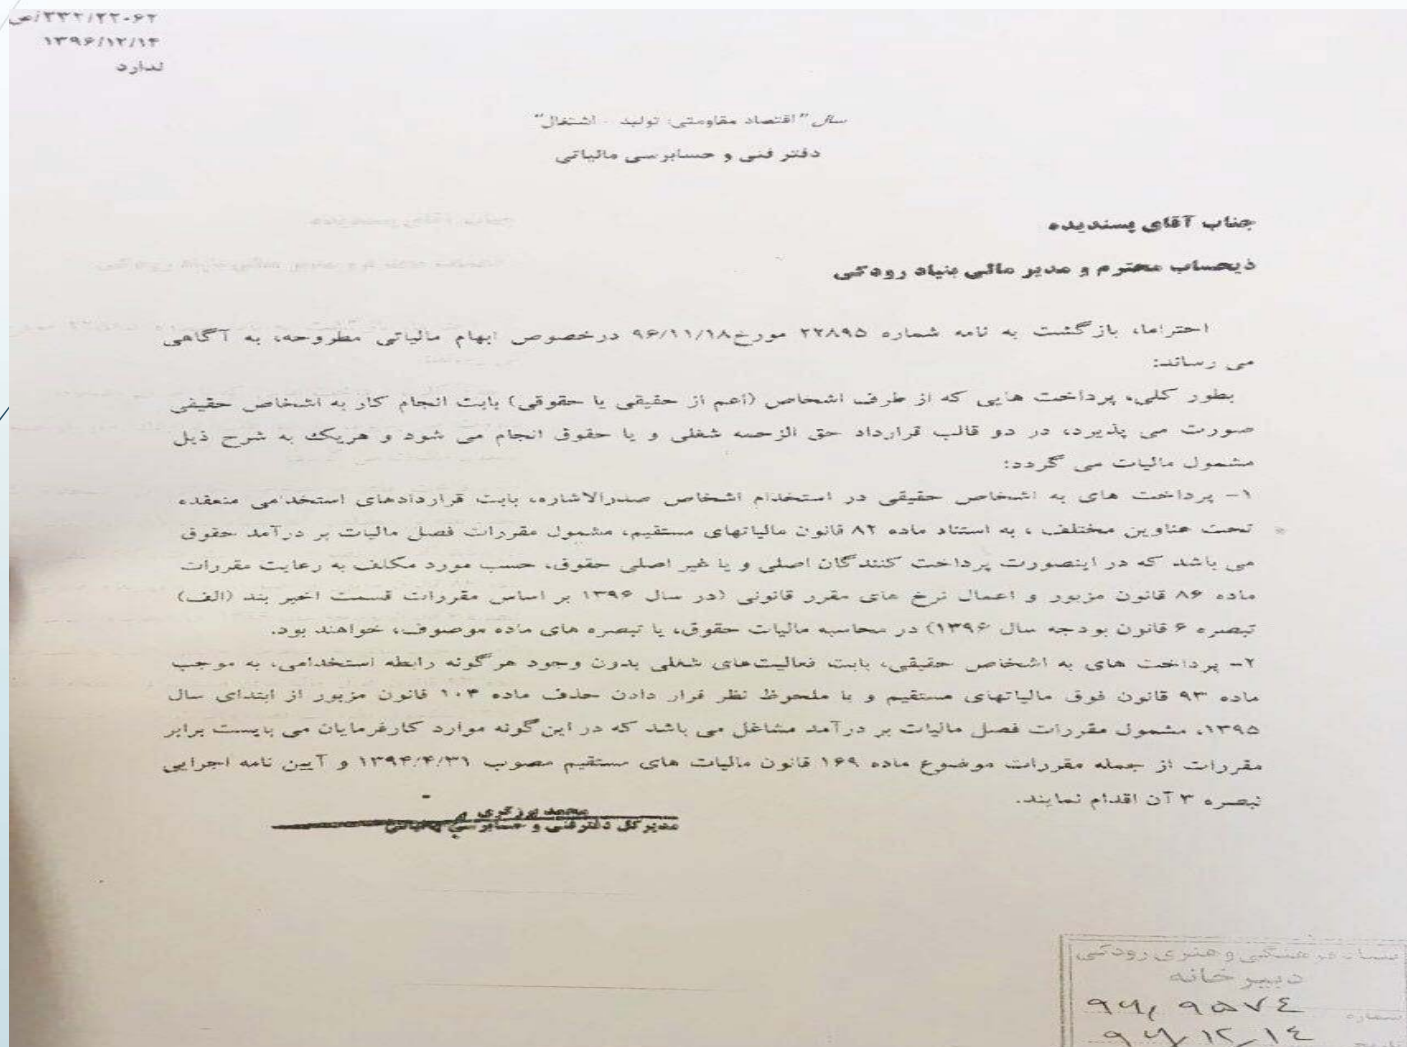 ۲۳۲/۲۲۰۶۲/ص
۱۳۹۶/۱۲/۱۴
ندارد
سال "اقتصاد مقاومتی: تولید - اشتغال"
دفتر فنی و حسابرسی مالیاتی
جناب آقای پسندیده
ذیحساب محترم و مدیر مالی بنیاد رودکی
احتراما، بازگشت به نامه شماره ۲۲۸۹۵ مورخ ۹۶/۱۱/۱۸ درخصوص ابهام مالیاتی مطروحه، به آگاهی
می رساند:
بطور کلی، پرداخت هایی که از طرف اشخاص (اعم از حقیقی یا حقوقی) بابت انجام کار به اشخاص حقیقی
صورت می پذیرد، در دو قالب قرارداد حق الزحمه شغلی و یا حقوق انجام می شود و هریک به شرح ذیل
مشمول مالیات می گردد:
۱- پرداخت های به اشخاص حقیقی در استخدام اشخاص صدرالاشاره، بابت قراردادهای استخدامی منعقده
تحت عناوین مختلف ، به استناد ماده ۸۲ قانون مالیاتهای مستقیم، مشمول مقررات فصل مالیات بر درآمد حقوق
می باشد که در اینصورت پرداخت کنندگان اصلی و یا غیر اصلی حقوق، حسب مورد مکلف به رعایت مقررات
ماده ۸۶ قانون مزبور و اعمال نرخ های مقرر قانونی (در سال ۱۳۹۶ بر اساس مقررات قسمت اخیر بند (الف)
تبصره ۶ قانون بودجه سال ۱۳۹۶) در محاسبه مالیات حقوق، یا تبصره های ماده موصوف، خواهند بود.
۲- پرداخت های به اشخاص حقیقی، بابت فعالیت‌های شغلی بدون وجود هرگونه رابطه استخدامی، به موجب
ماده ۹۳ قانون فوق مالیاتهای مستقیم و با ملحوظ نظر قرار دادن حذف ماده ۱۰۴ قانون مزبور از ابتدای سال
۱۳۹۵، مشمول مقررات فصل مالیات بر درآمد مشاغل می باشد که در این گونه موارد کارفرمایان می بایست برابر
مقررات از جمله مقررات موضوع ماده ۱۶۹ قانون مالیات های مستقیم مصوب ۱۳۹۴/۴/۳۱ و آیین نامه اجرایی
تبصره ۳ آن اقدام نمایند.
محمد برزگری
مدیرکل دفترفنی و حسابرسی مالیاتی
بنیاد فرهنگی و هنری رودکی
دبیرخانه
شماره ۹۶/۹۵۷۴
تاریخ ۹۶/۱۲/۱۴